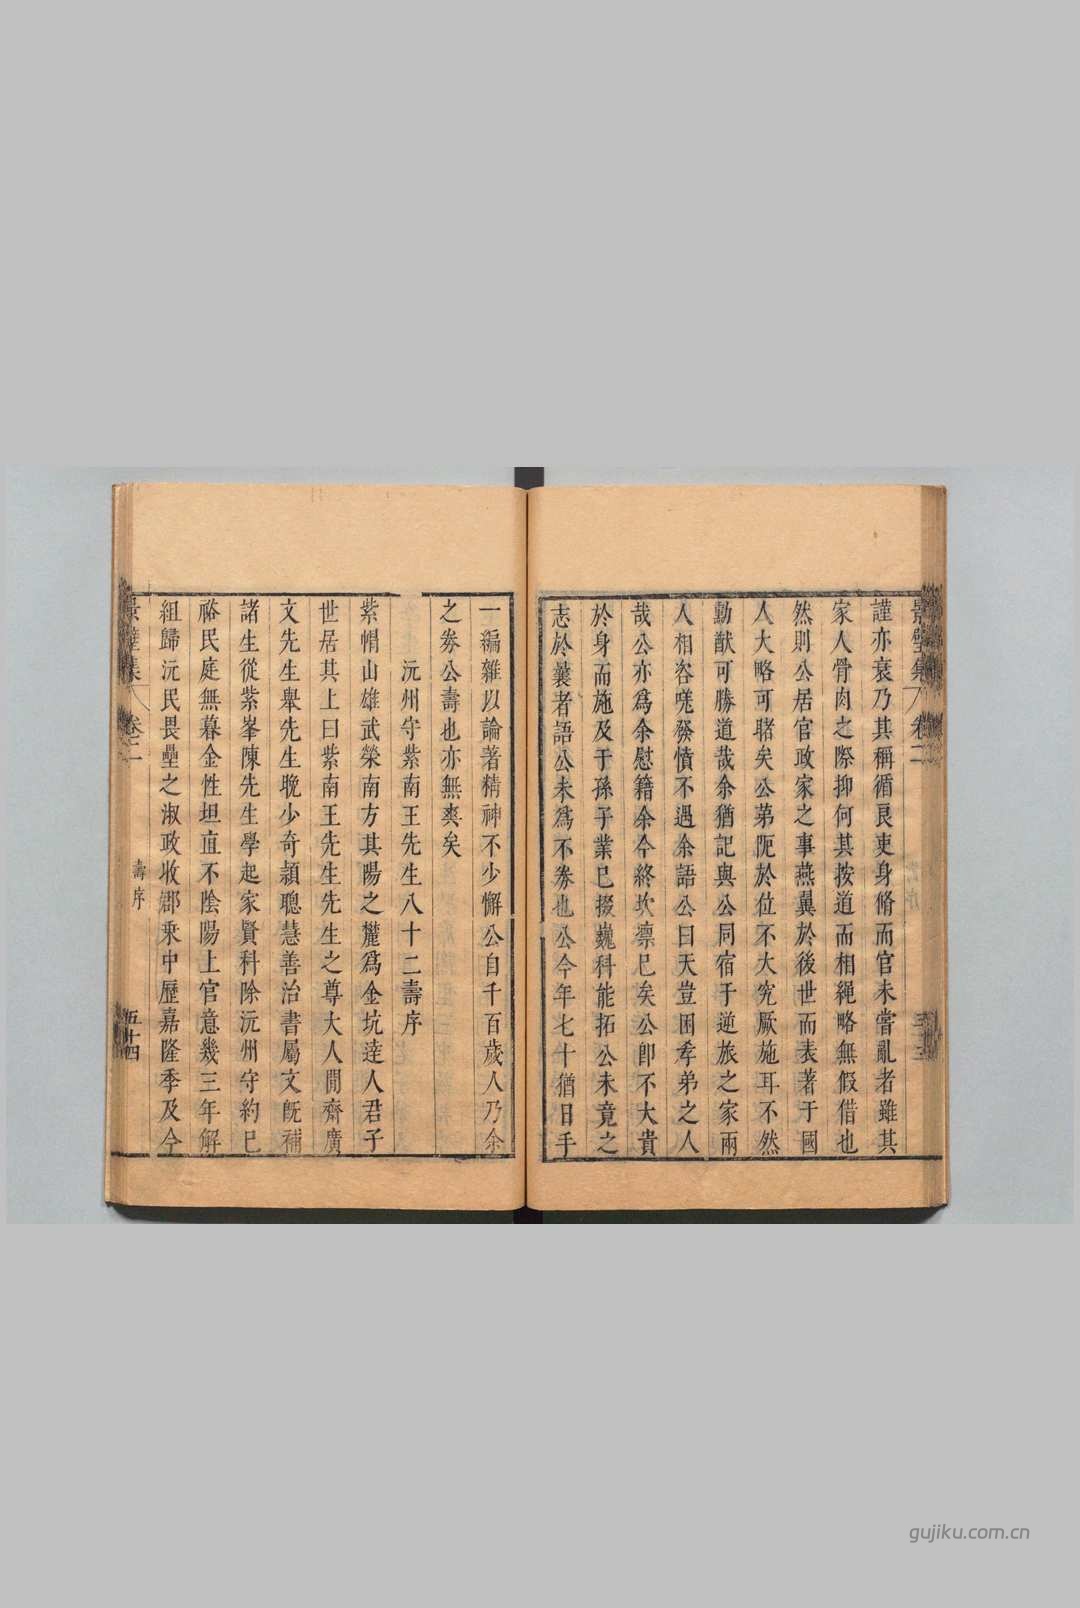 謹亦衰乃其稱循良吏身脩而官未嘗亂者雖其
家人骨肉之際抑何其按道而相繩略無假借也
然則公居官政家之事燕翼於後世而表著于國
人大略可睹矣公弟阨於位不大究厥施耳不然
勳猷可勝道哉余猶記與公同宿于逆旅之家兩
人相咨嗟發憤不遇余語公曰天豈困孝弟之人
哉公亦爲余慰籍余今終坎凛已矣公卽不大貴
於身而施及于孫子業已掇巍科能拓公未竟之
志於曩者語公未爲不券也公今年七十猶日手
一編雜以論著精神不少懈公自千百歲人乃余
之券公壽也亦無爽矣
沅州守紫南王先生八十二壽序
紫帽山雄武榮南方其陽之麓爲金坑逹人君子
世居其上曰紫南王先生先生之尊大人閒齋廣
文先生舉先生晩少奇穎聰慧善治書屬文旣補
諸生從紫峯陳先生學起家賢科除沅州守約已
裕民庭無暮金性坦直不陰陽上官意幾三年解
組歸沅民畏壘之淑政收郡乘中歷嘉隆季及今
景璧集
卷二
壽序
五十四
gujiku.com.cn